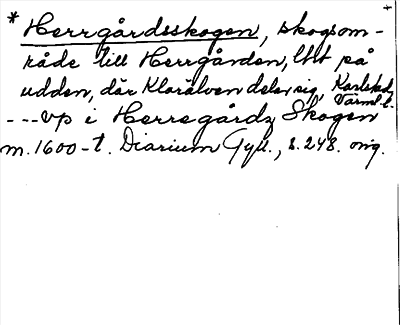 * Herrgårdsskogen, skogsom-
råde till Herrgården, lht på
udden, där Klarälven delar sig, Karlstad,
Värml.
---vp i Herregårdz Skogen
m. 1600-t. Diarium Gyll., s. 248. orig.